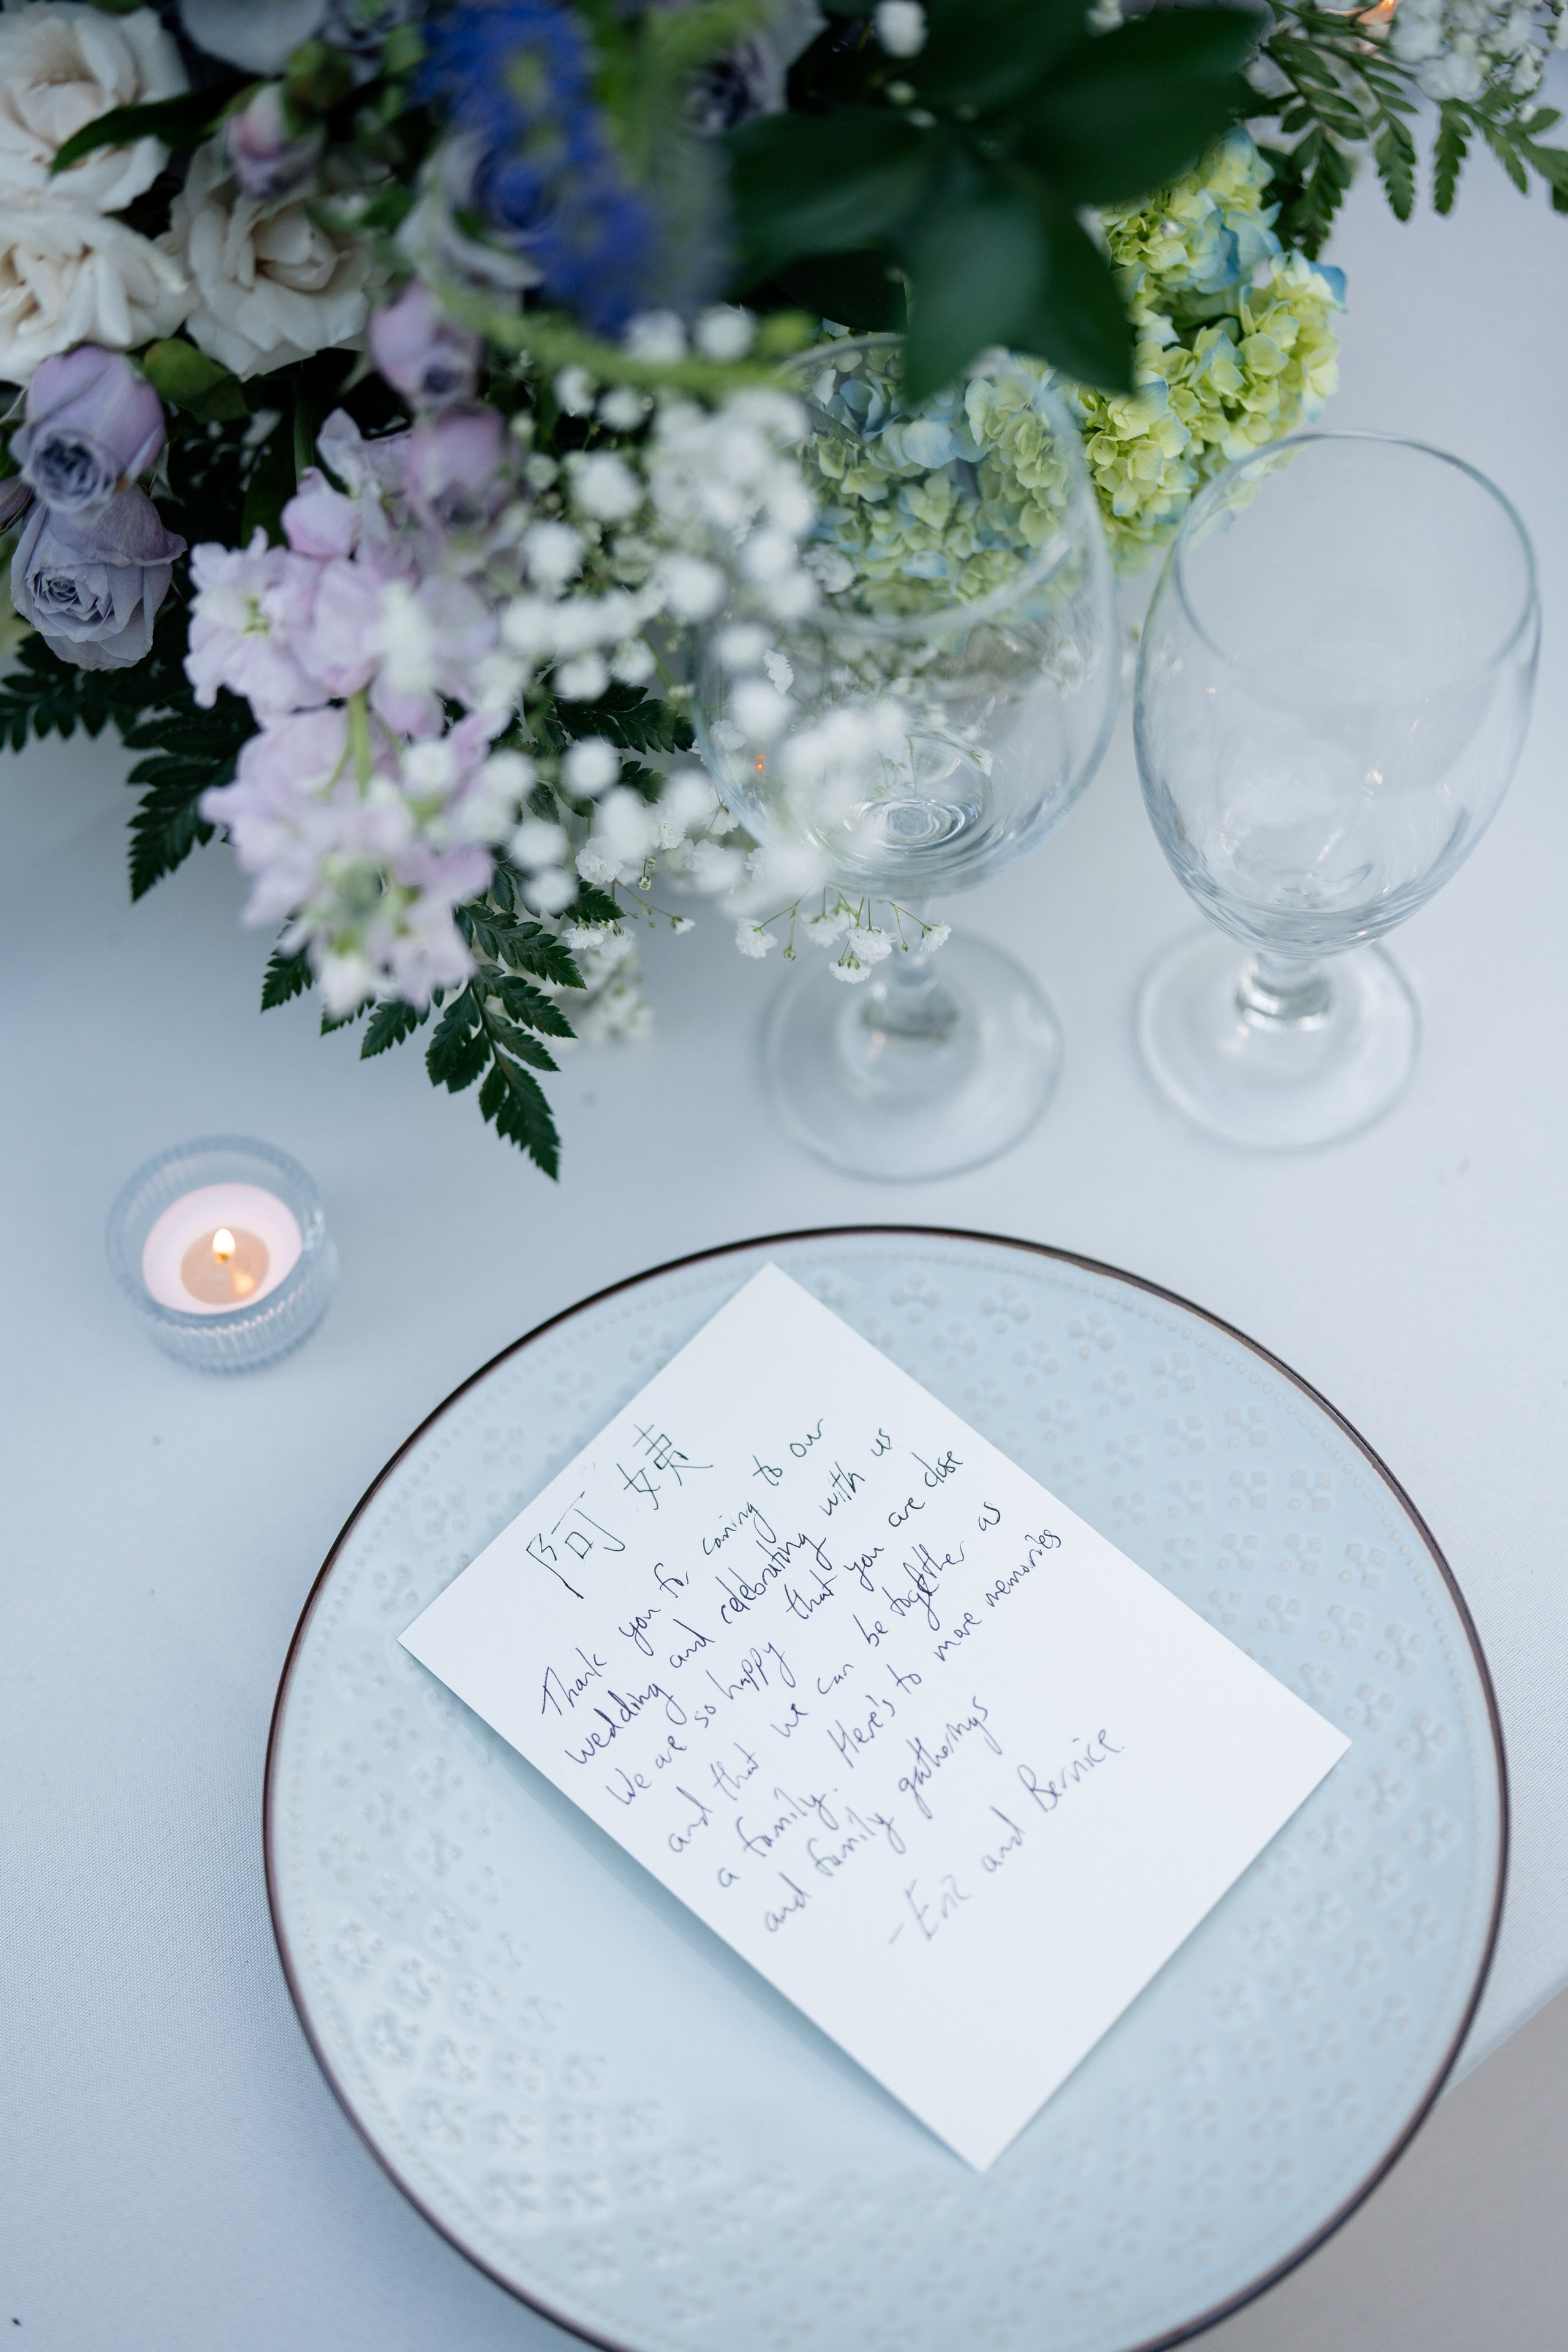 阿姨
Thank you for coming to our
wedding and celebrating with us
We are so happy that you are close
and that we can be together as
a family. Here's to more memories
and family gatherings
- Eric and Bernice.